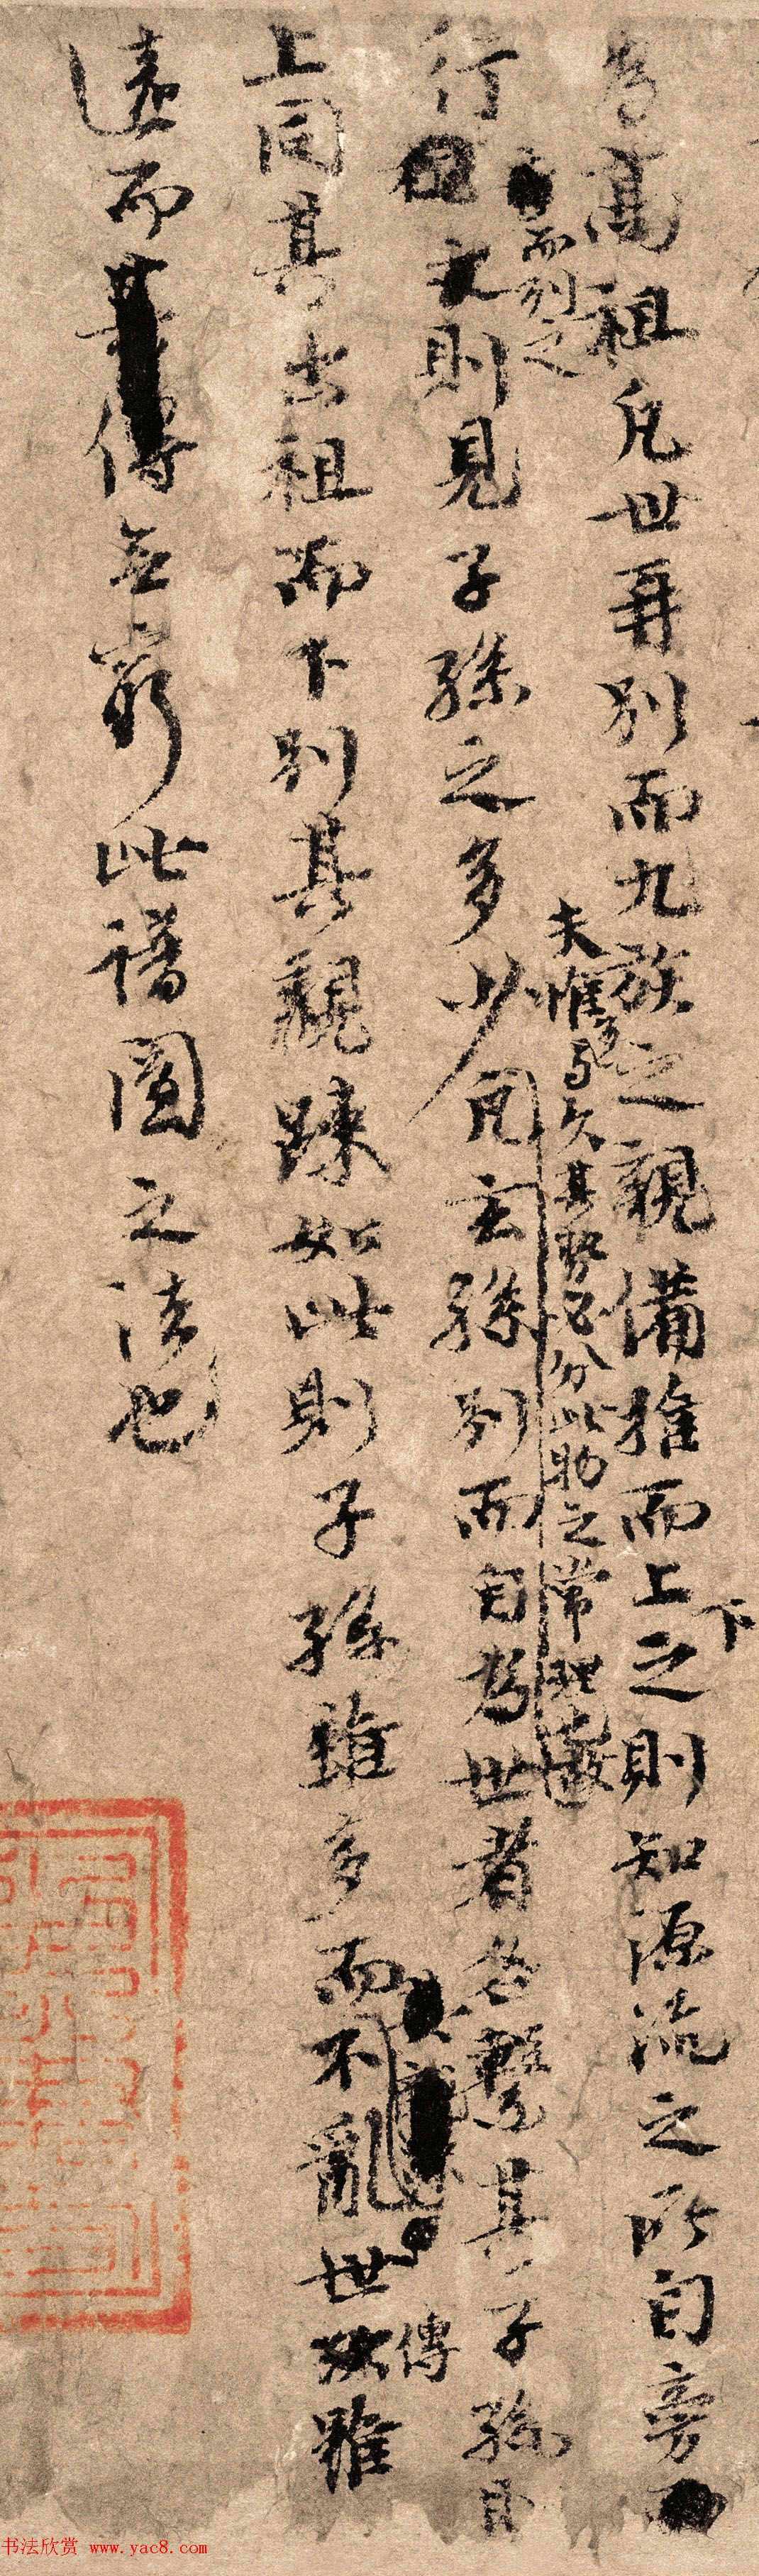 為高祖凡世再別而九族之親備推而上之則知源流之所自旁
下
而列之
夫惟多與久其勢必分此物之常理也故
行則見子孫之多少凡玄孫別而自為世者各繫其子孫
上同其出祖而下別其親踈如此則子孫雖多而不亂世雖
傳
遠而傳無窮此譜圖之法也
书法欣赏 www.yac8.com